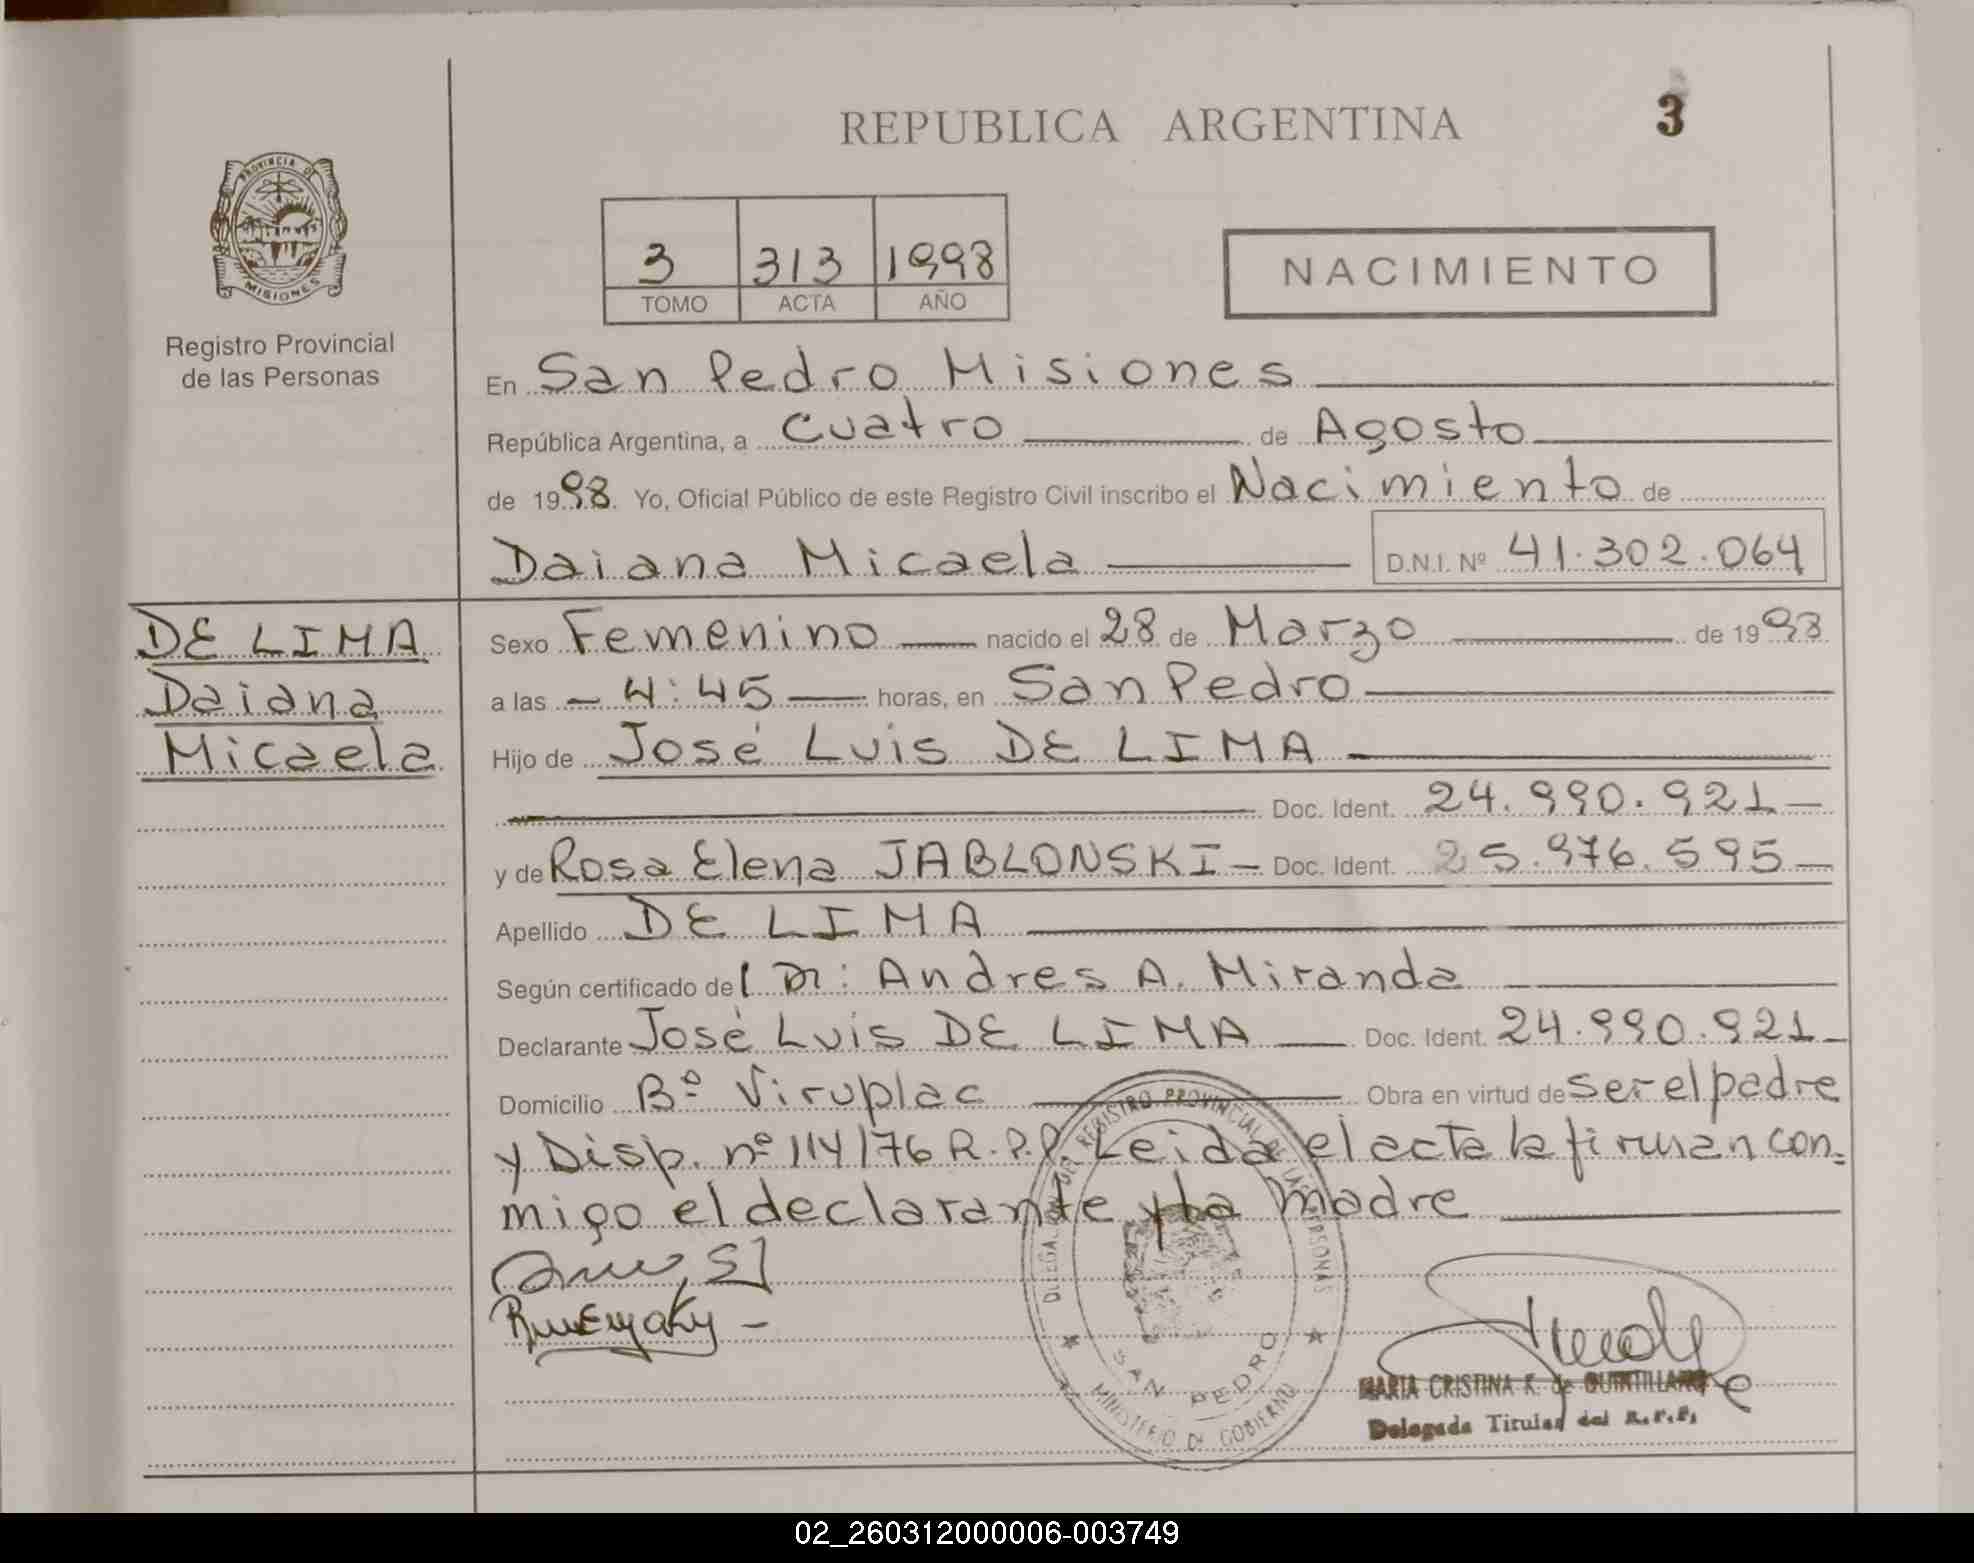 REPUBLICA ARGENTINA
3
PROVINCIA DE
MISIONES
Registro Provincial
de las Personas
3 313 1998
TOMO ACTA AÑO
NACIMIENTO
En San Pedro Misiones
República Argentina, a Cuatro de Agosto
de 1998. Yo, Oficial Público de este Registro Civil inscribo el Nacimiento de
Daiana Micaela D.N.I. Nº 41.302.064
DE LIMA
Daiana
Micaela
Sexo Femenino nacido el 28 de Marzo de 1998
a las 4:45 horas, en San Pedro
Hijo de José Luis DE LIMA
Doc. Ident. 24.990.921
y de Rosa Elena JABLONSKI Doc. Ident. 25.976.595
Apellido DE LIMA
Según certificado del Dr: Andres A. Miranda
Declarante José Luis DE LIMA Doc. Ident. 24.990.921
Domicilio Bº Viruplac Obra en virtud de ser el padre
y Disp. nº 114/76 R.P.P. Leida el acta la firman con=
migo el declarante y la madre
DELEGACION DEL REGISTRO PROVINCIAL DE LAS PERSONAS
SAN PEDRO
MINISTERIO DE GOBIERNO
MARIA CRISTINA K. de QUINTILLANO
Delegada Titular del R.P.P.
02_260312000006-003749